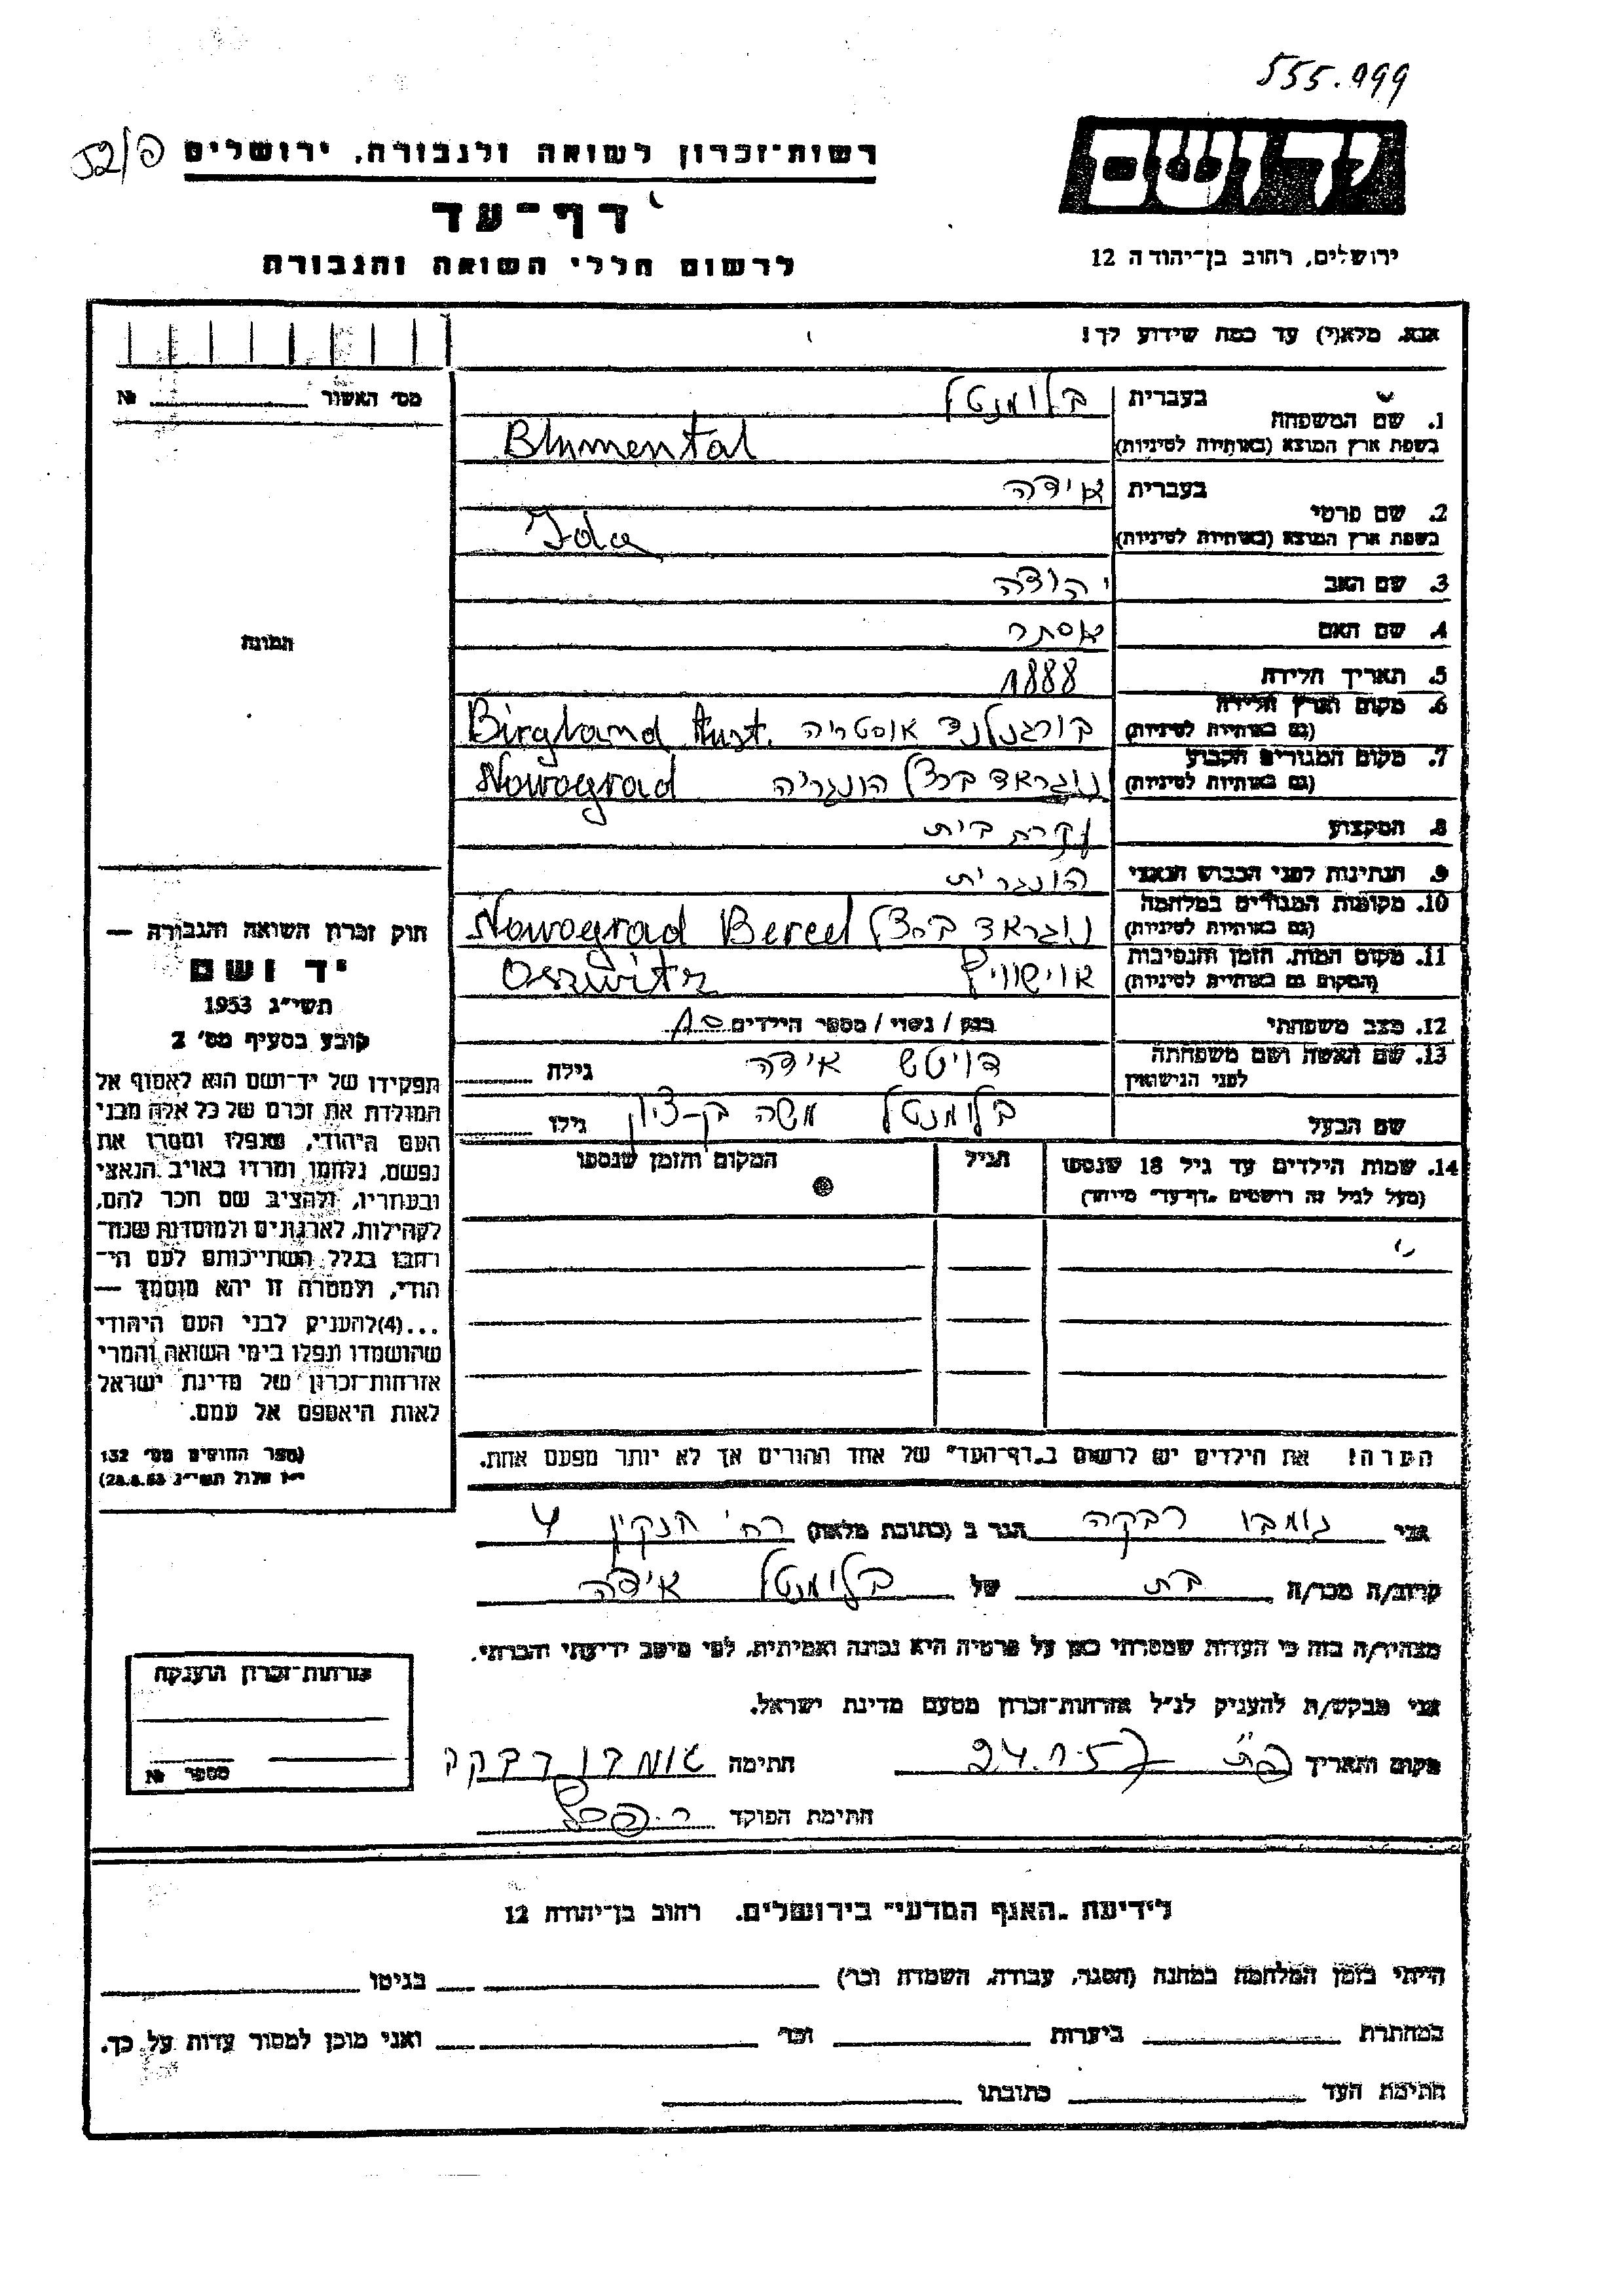 555.999
רשות-זכרון לשואה ולגבורה, ירושלים
יד ושם
דף-עד
ירושלים, רחוב בן-יהודה 12
לרשום חללי השואה והגבורה
אנא, מלא(י) עד כמה שידוע לך!
מס' האשור № 
1. שם המשפחה בעברית בלומנטל
בשפת ארץ המוצא (באותיות לטיניות) Blumental
2. שם פרטי בעברית אידה
בשפת ארץ המוצא (באותיות לטיניות) Ida
3. שם האב יהודה
4. שם האם אסתר
התמונה
5. תאריך הלידה 1888
6. מקום וארץ הלידה (גם באותיות לטיניות) בורגנלנד אוסטריה Birgland Aust.
7. מקום המגורים הקבוע (גם באותיות לטיניות) נוגראד ברצל הונגריה Nowograd
8. המקצוע עקרת בית
9. הנתינות לפני הכבוש הנאצי הונגרית
10. מקומות המגורים במלחמה (גם באותיות לטיניות) נוגראד ברצל Nowograd Bercel
11. מקום המות, הזמן והנסיבות (המקום גם באותיות לטיניות) אוישוויץ Oszwitz
12. מצב משפחתי רווק / נשוי / מספר הילדים
13. שם האשה ושם משפחתה לפני הנישואין דויטש אידה גילה
שם הבעל בלומנטל משה בן-ציון גילו
14. שמות הילדים עד גיל 18 שנספו הגיל המקום והזמן שנספו
(מעל לגיל זה רושמים "דף-עד" מיוחד)
חוק זכרון השואה והגבורה —
יד ושם
תשי"ג 1953
קובע בסעיף מס' 2
תפקידו של יד-ושם הוא לאסוף אל
המולדת את זכרם של כל אלה מבני
העם היהודי, שנפלו ומסרו את
נפשם, נלחמו ומרדו באויב הנאצי
ובעוזריו, ולהציב שם וזכר להם,
לקהילות, לארגונים ולמוסדות שנח-
רבו בגלל השתייכותם לעם הי-
הודי, ולמטרה זו יהא מוסמך —
...(4)להעניק לבני העם היהודי
שהושמדו ונפלו בימי השואה והמרי
אזרחות-זכרון של מדינת ישראל
לאות היאספם אל עמם.
(ספר החוקים מס' 132
י"ז אלול תשי"ג 28.8.53)
הערה! את הילדים יש לרשום ב"דף-העד" של אחד ההורים אך לא יותר מפעם אחת.
אני גומבו רבקה הגר ב (כתובת מלאה) רח' חנקין 4
קרוב/ה מכר/ה בת של בלומנטל אידה
מצהיר/ה בזה כי העדות שמסרתי כאן על פרטיה היא נכונה ואמיתית, לפי מיטב ידיעתי והכרתי.
אני מבקש/ת להעניק לנ"ל אזרחות-זכרון מטעם מדינת ישראל.
מקום ותאריך פ"ת 24.1.57 חתימה גומבו רבקה
חתימת הפוקד
אזרחות-זכרון הוענקה
מספר №
לידיעת "האגף המדעי" בירושלים, רחוב בן-יהודה 12
הייתי בזמן המלחמה במחנה (הסגר, עבודה, השמדה וכו') בגיטו
במחתרת ביערות וכו' ואני מוכן למסור עדות על כך.
חתימת העד כתובתו